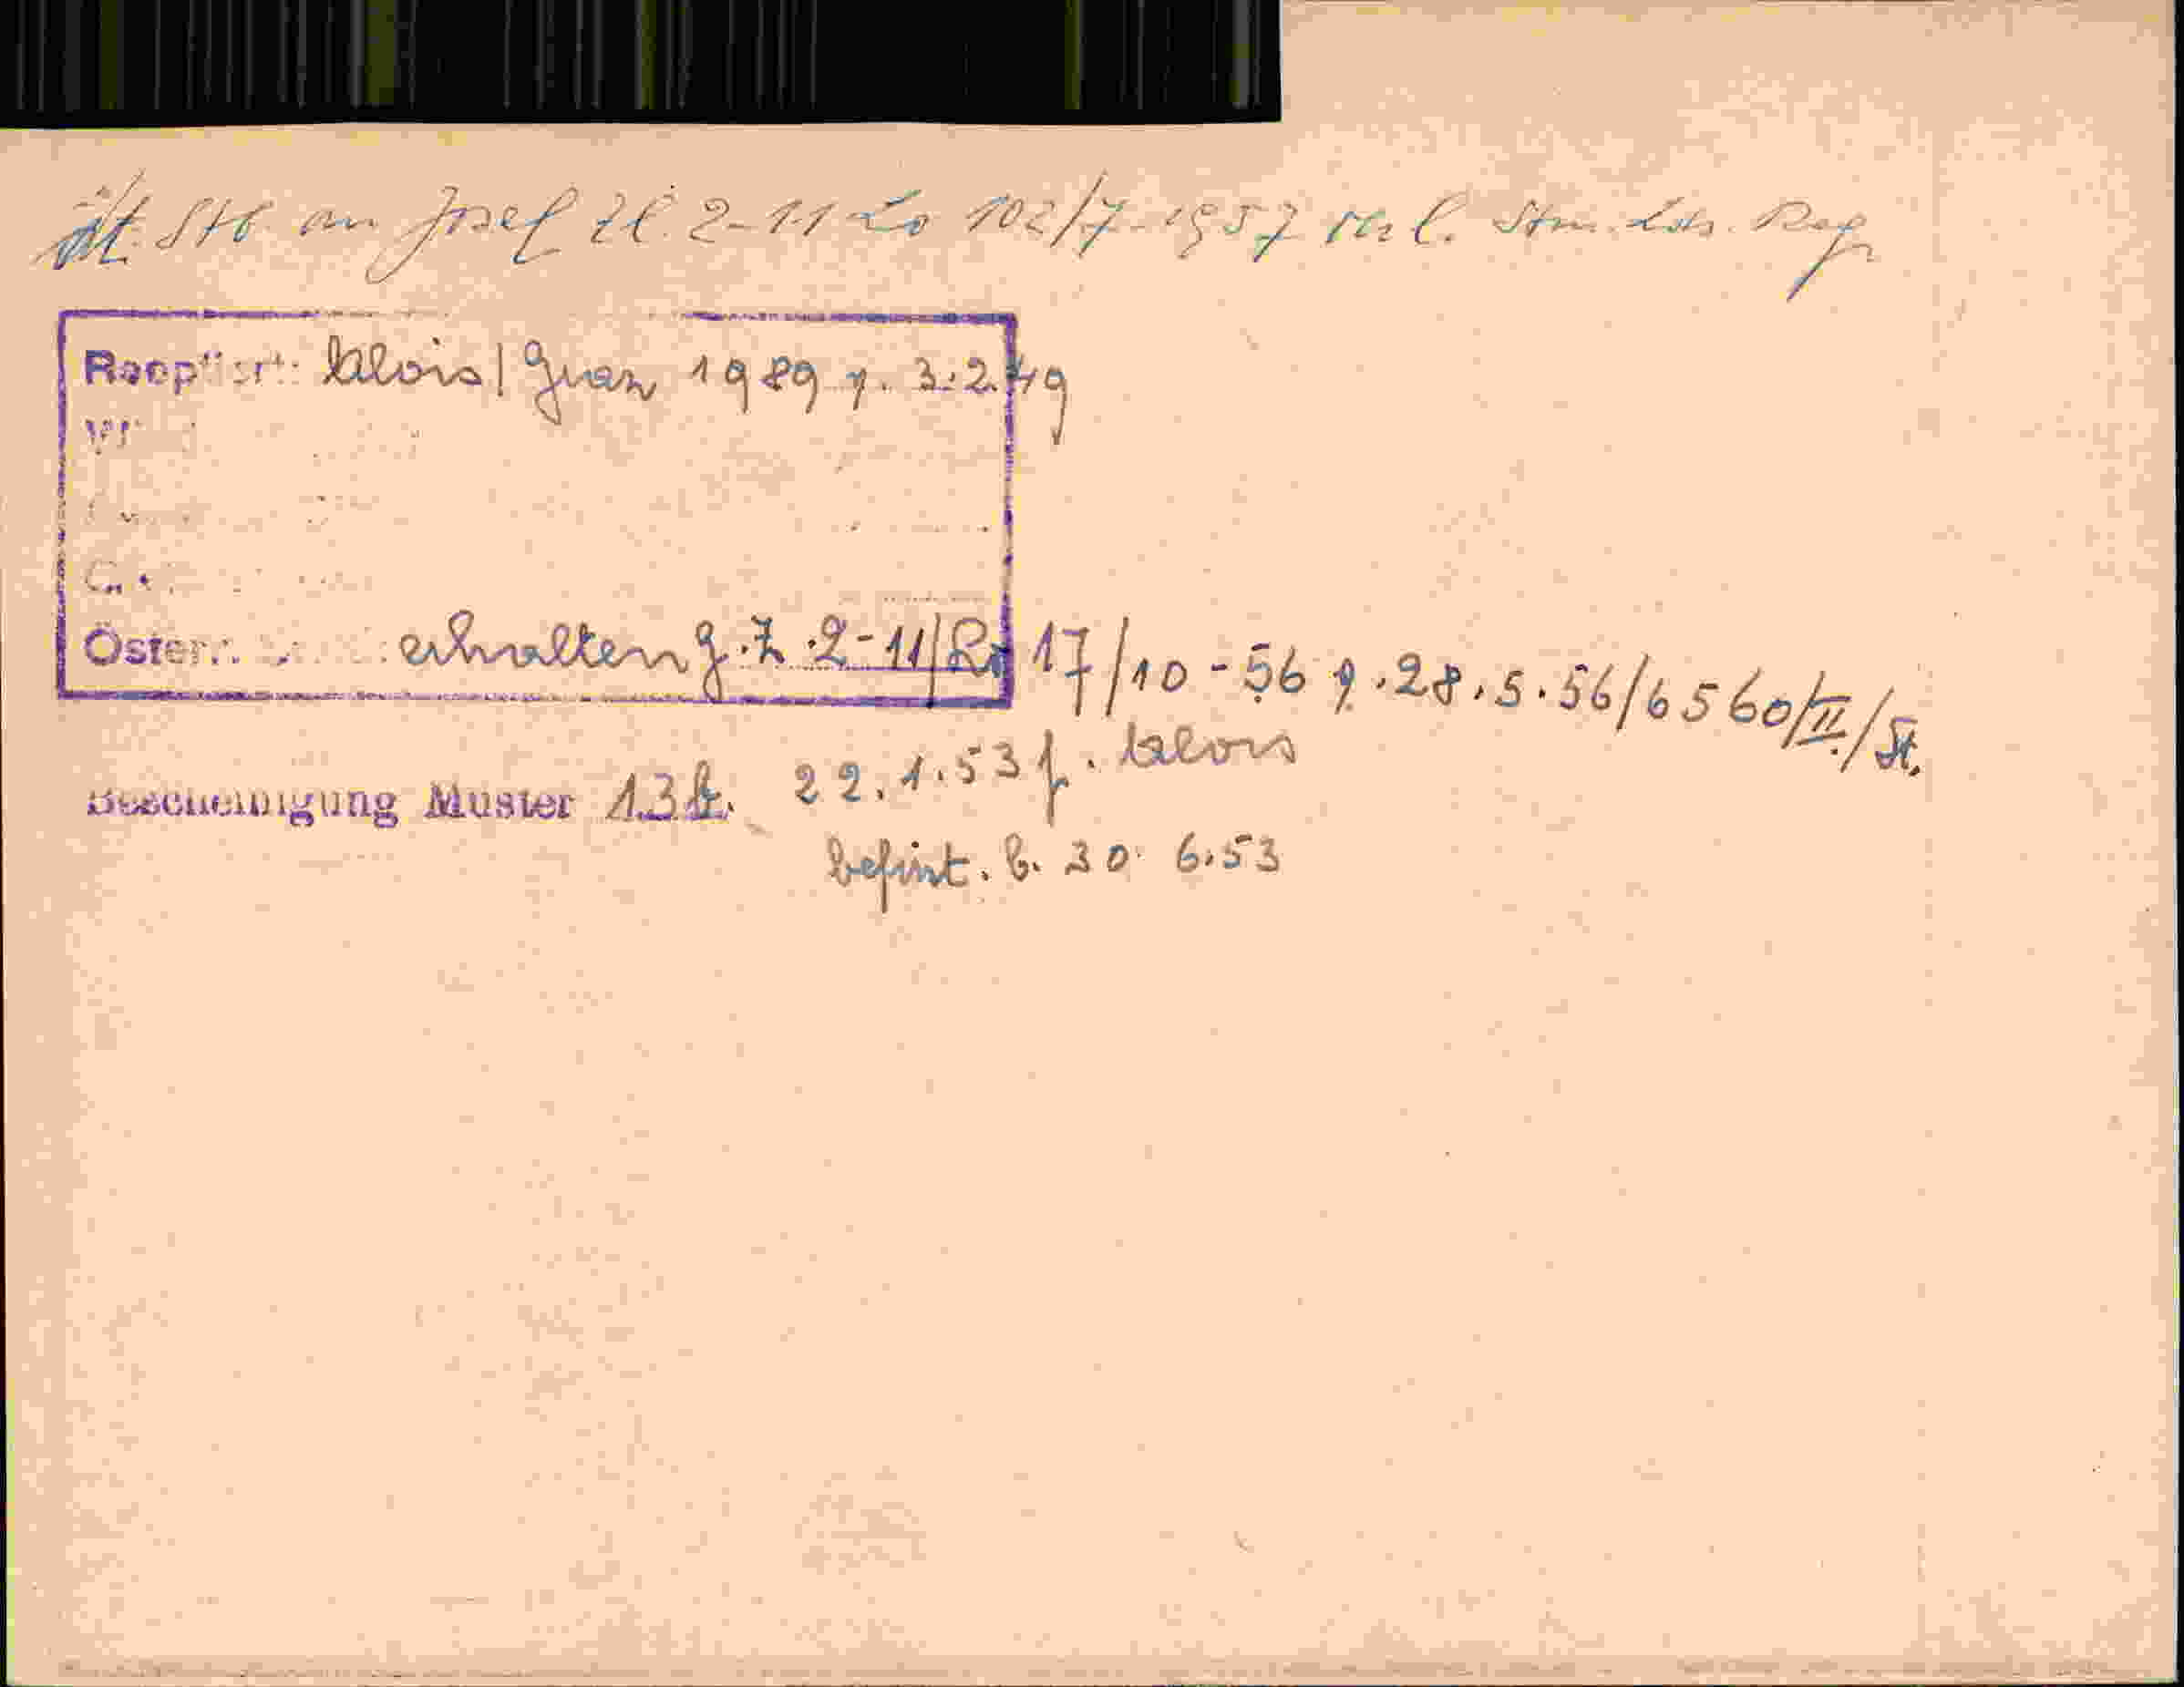 öst. Stb. an Josef Zl. 2-11 Lo 102/7-1957 Stm. Lds. Reg
Reoptiert: Alois / Graz 1989 v. 3.2.49
Österr. erhalten g. Z. 2-11/ 17/10-56 v. 28.5.56/6560/II./St.
Bescheinigung Muster 13 22.1.53 f. Alois
befrist. b. 30. 6.53